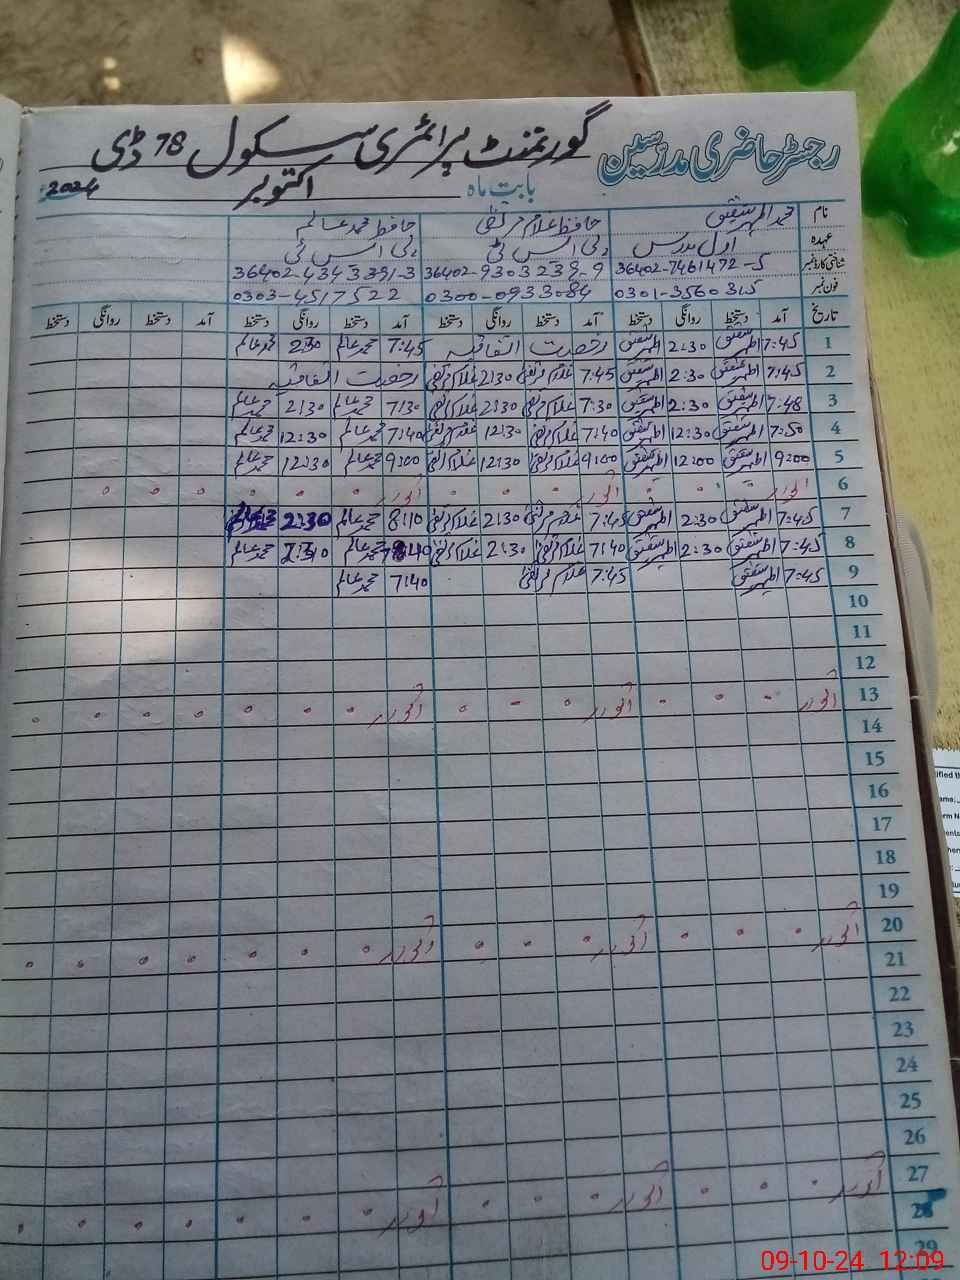 رجسٹر حاضری مدرسین گورنمنٹ پرائمری سکول 78 ڈی
بابت ماہ اکتوبر 2024
نام محمد اطہر شفیق حافظ غلام مرتضیٰ حافظ محمد عالم
عہدہ اول مدرس پی ایس ٹی پی ایس ٹی
شناختی کارڈ نمبر 36402-7461472-5 36402-9303239-9 36402-4343391-3
فون نمبر 0301-3560315 0300-0933084 0303-4517522
تاریخ آمد دستخط روانگی دستخط آمد دستخط روانگی دستخط آمد دستخط روانگی دستخط آمد دستخط روانگی دستخط
1 7:45 اطہر شفیق 2:30 اطہر شفیق رخصت اتفاقیہ 7:45 محمد عالم 2:30 محمد عالم
2 7:45 اطہر شفیق 2:30 اطہر شفیق 7:45 غلام مرتضیٰ 2:30 غلام مرتضیٰ رخصت اتفاقیہ
3 7:48 اطہر شفیق 2:30 اطہر شفیق 7:30 غلام مرتضیٰ 2:30 غلام مرتضیٰ 7:30 محمد عالم 2:30 محمد عالم
4 7:50 اطہر شفیق 12:30 اطہر شفیق 7:40 غلام مرتضیٰ 12:30 غلام مرتضیٰ 7:40 محمد عالم 12:30 محمد عالم
5 9:00 اطہر شفیق 12:00 اطہر شفیق 9:00 غلام مرتضیٰ 12:30 غلام مرتضیٰ 9:00 محمد عالم 12:30 محمد عالم
6 اتوار اتوار اتوار
7 7:45 اطہر شفیق 2:30 اطہر شفیق 7:45 غلام مرتضیٰ 2:30 غلام مرتضیٰ 8:10 محمد عالم 2:30 محمد عالم
8 7:45 اطہر شفیق 2:30 اطہر شفیق 7:40 غلام مرتضیٰ 2:30 غلام مرتضیٰ محمد عالم محمد عالم
9 7:45 اطہر شفیق 7:45 غلام مرتضیٰ 7:40 محمد عالم
10
11
12
13 اتوار اتوار اتوار
14
15
16
17
18
19
20 اتوار اتوار اتوار
21
22
23
24
25
26
27 اتوار اتوار اتوار
28
29
09-10-24 12:09